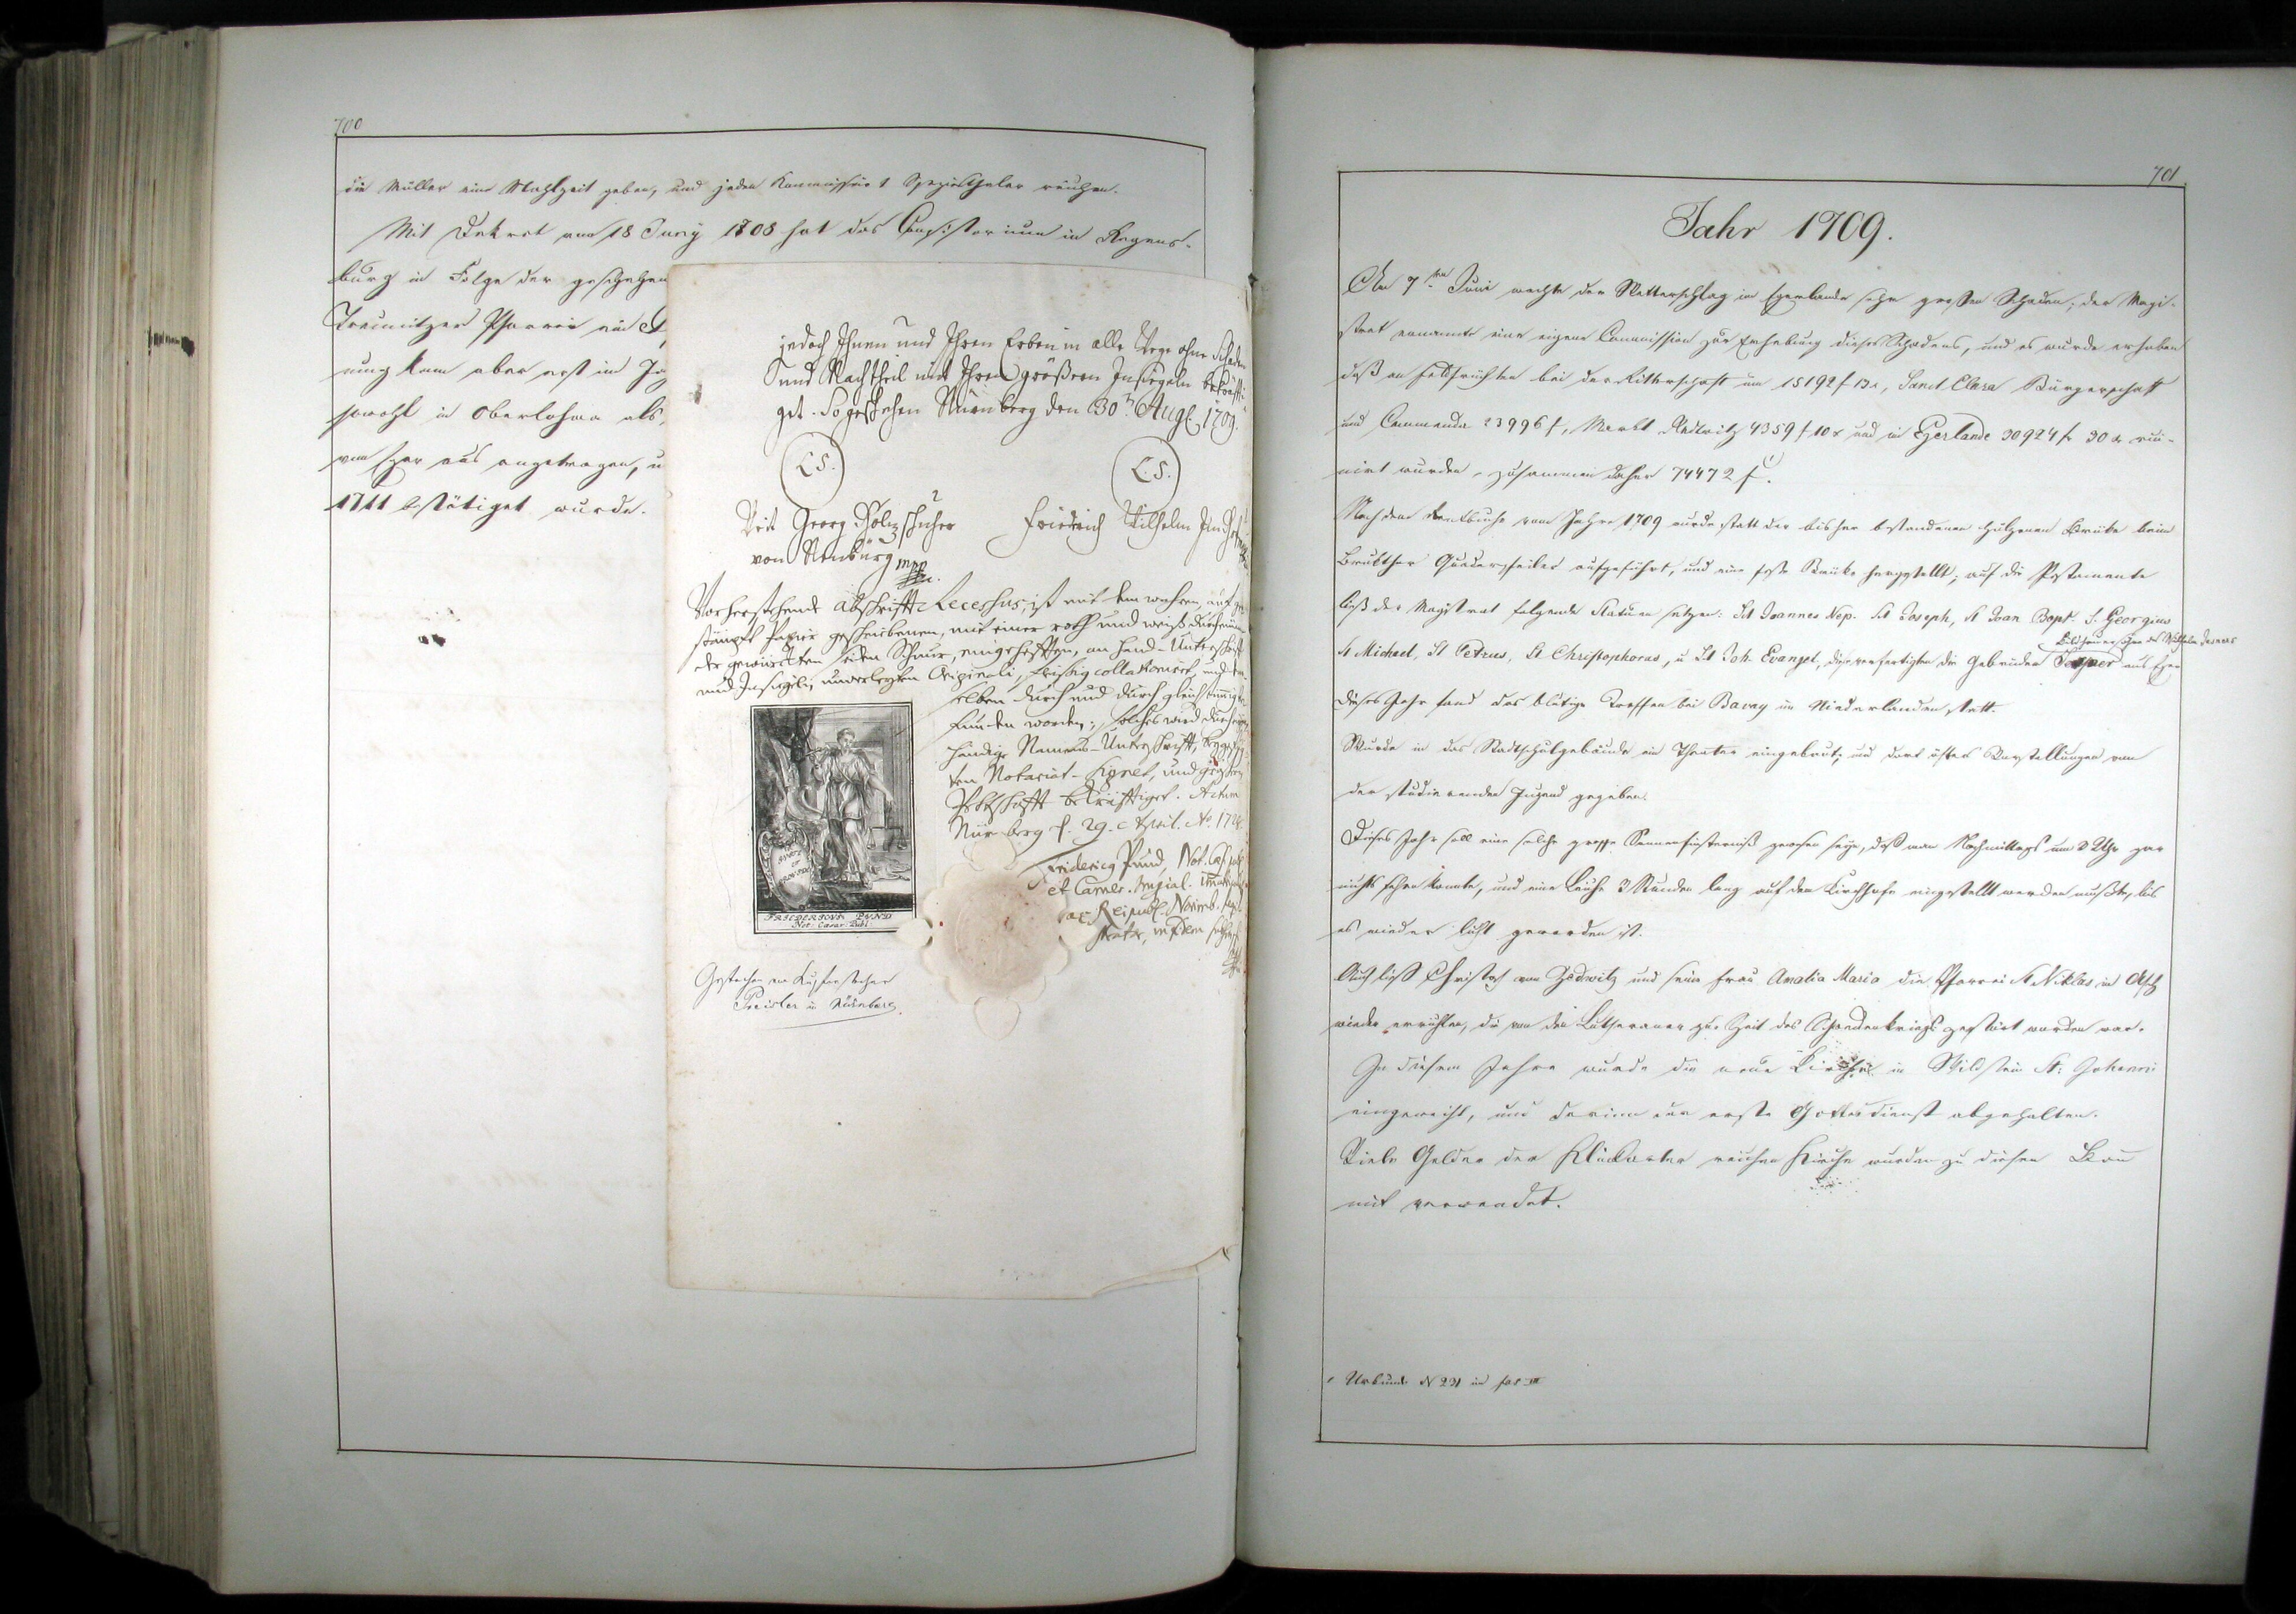 700
die Müller eine Mahlzeit geben, und jeden Kommissär 1 Speziesthaler reichen.
Mit Dekret vom 18 Juny 1708 hat das Consistorium in Regens-
burg in Folge der geschehen
Treunitzer Pfarrei ein
nung kam aber erst im
sowohl in Oberlohma als
von Eger aus angetragen, u
1711 bestätiget wurde.
jedoch Ihnen und Ihren Erben in alle Wege ohne Schaden
und Nachtheil mit Ihren größern Insiegeln bekräffti-
get. So geschehen Nürnberg den 30 Aug. 1709.
L.S.
L.S.
Veit Georg Holzschuher
von Neuburg mpp
Friedrich Wilhelm
Vorherstehende Abschrifft Recessus, ist mit dem wahren, auf ge-
stämpft Papier geschriebenen, mit einer roth und weiß
gewürckten seiden Schnur, eingehefften, an Hand-Unterschrifft
und Insigeln, unverlezten Originali, fleißig collationirt, und
selben durch und durch gleichstimmig
funden worden; solches wird durch eigen
händige Namens-Unterschrifft,
ten Notariat-Signet, und
Pettschafft bekräfftiget. Actum
Nürnberg d. 29. April. Ao. 172
Fridericus Pünd, Not. Cæs. publ.
et Camer. Imperial. immatricul.
ac Reipubl. Norimb.
FRIDERICVS PVND
Not: Cæsar: Publ:
Gestochen von Kupferstecher
Preisler in Nürnberg.
701
Jahr 1709.
Am 7ten Juni machte der Wetterschlag im Egerlande sehr großen Schaden, der Magi-
strat ernannte eine eigene Commission zur Erhebung dieses Schadens, und es wurde erhoben
daß an Feldfrüchten bei der Ritterschaft um 15192 f 13x, Sanct Clara Bürgerschaft
und Commenda 23996 f, Markt Redwitz 4359 f 10x und im Egerlande 30924 f 30x rui-
nirt wurden, zusammen daher 74472 f.
Nach dem Rentbuche vom Jahre 1709 wurde statt der bisher bestandenen hölzernen Brücke beim
Bruckthor Quaderpfeiler aufgeführt, und eine feste Brücke hergestellt; auf die Postamente
ließ der Magistrat folgende Statuen setzen: St Joannes Nep. St Joseph, St Joan Bapt. S. Georgius
St Michael, St Petrus, St Christophorus, u St Joh. Evangel, diese verfertigten die Gebrüder aus Eger
Dieses Jahr fand das blutige Treffen bei Bavay in Niederlanden statt.
Wurde in das Stadtschulgebäude ein Theater eingebaut, und dort öfters Vorstellungen von
der studierenden Jugend gegeben.
Dieses Jahr soll eine solche große Sonnenfinsterniß gewesen seyn, daß man Nachmittags um 2 Uhr gar
nichts sehen konnte, und eine Leiche 3 Stunden lang auf dem Kirchhofe eingestellt werden mußte, bis
es wieder licht geworden ist.
Auch ließ Christof von Zedwitz und seine Frau Amalia Maria die Pfarrei St Niklas in Asch
wieder errichten, die von den Lutheranern zur Zeit des Schwedenkriegs zerstört worden war.
In diesem Jahre wurde die neue Kirche in Wildstein St: Johanni
eingeweiht, und darinn der erste Gottesdienst abgehalten.
Viele Gelder der Klinkarter reichen Kirche wurden zu diesem Bau
mit verwendet.
Urkunde N 231 in fas III